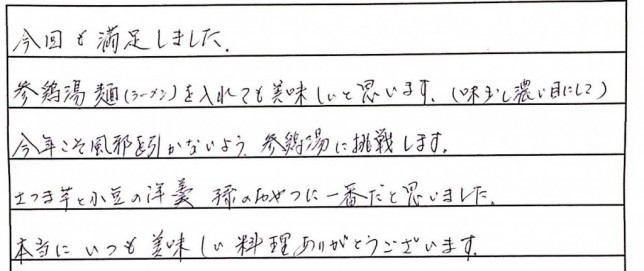 今回も満足しました。
参鶏湯 麺(ラーメン)を入れても美味しいと思います。(味少し濃い目にして)
今年こそ風邪を引かないよう、参鶏湯に挑戦します。
さつま芋と小豆の洋羹 孫のおやつに一番だと思いました。
本当に いつも 美味しい料理ありがとうございます。